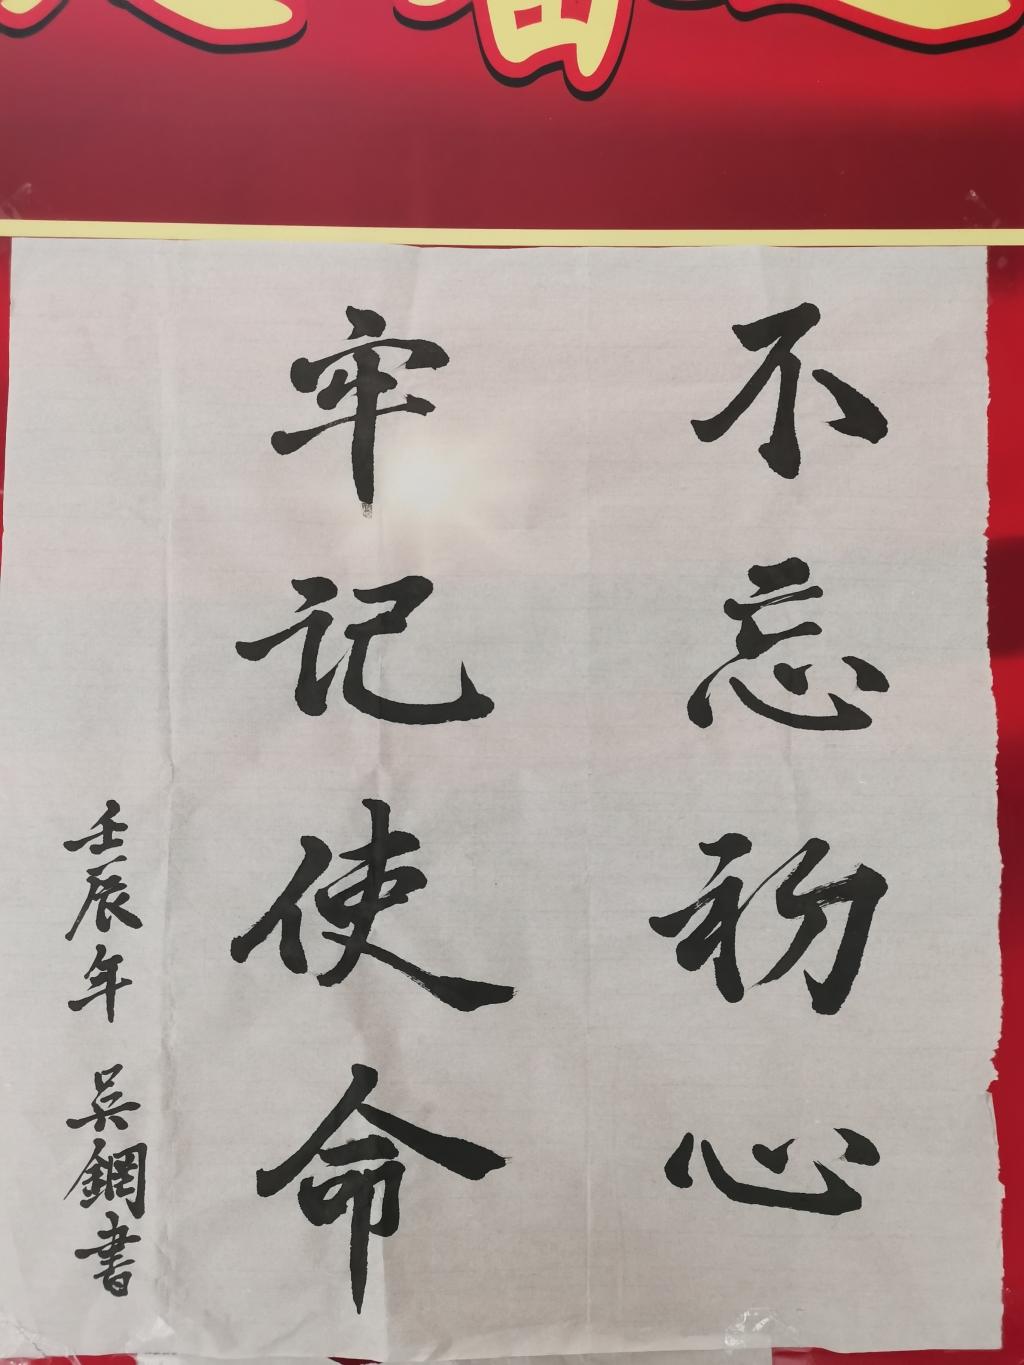 不忘初心
牢记使命
壬辰年 吴鋼書